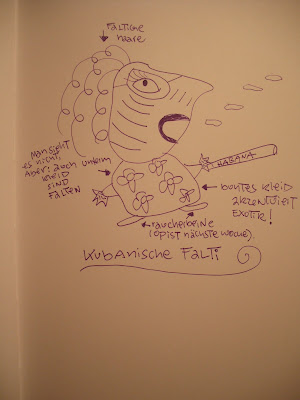 FALTiGE
HAARE
MAN SiEHT
ES NiCHT,
ABER: AUCH UNTERM
KLEiD
SiND
FALTEN
HABANA
BUNTES KLEiD
AKZENTUiERT
EXOTiK!
RAUCHERBEiNE
(OP iST NÄCHSTE WOCHE)
KUBANiSCHE FALTi